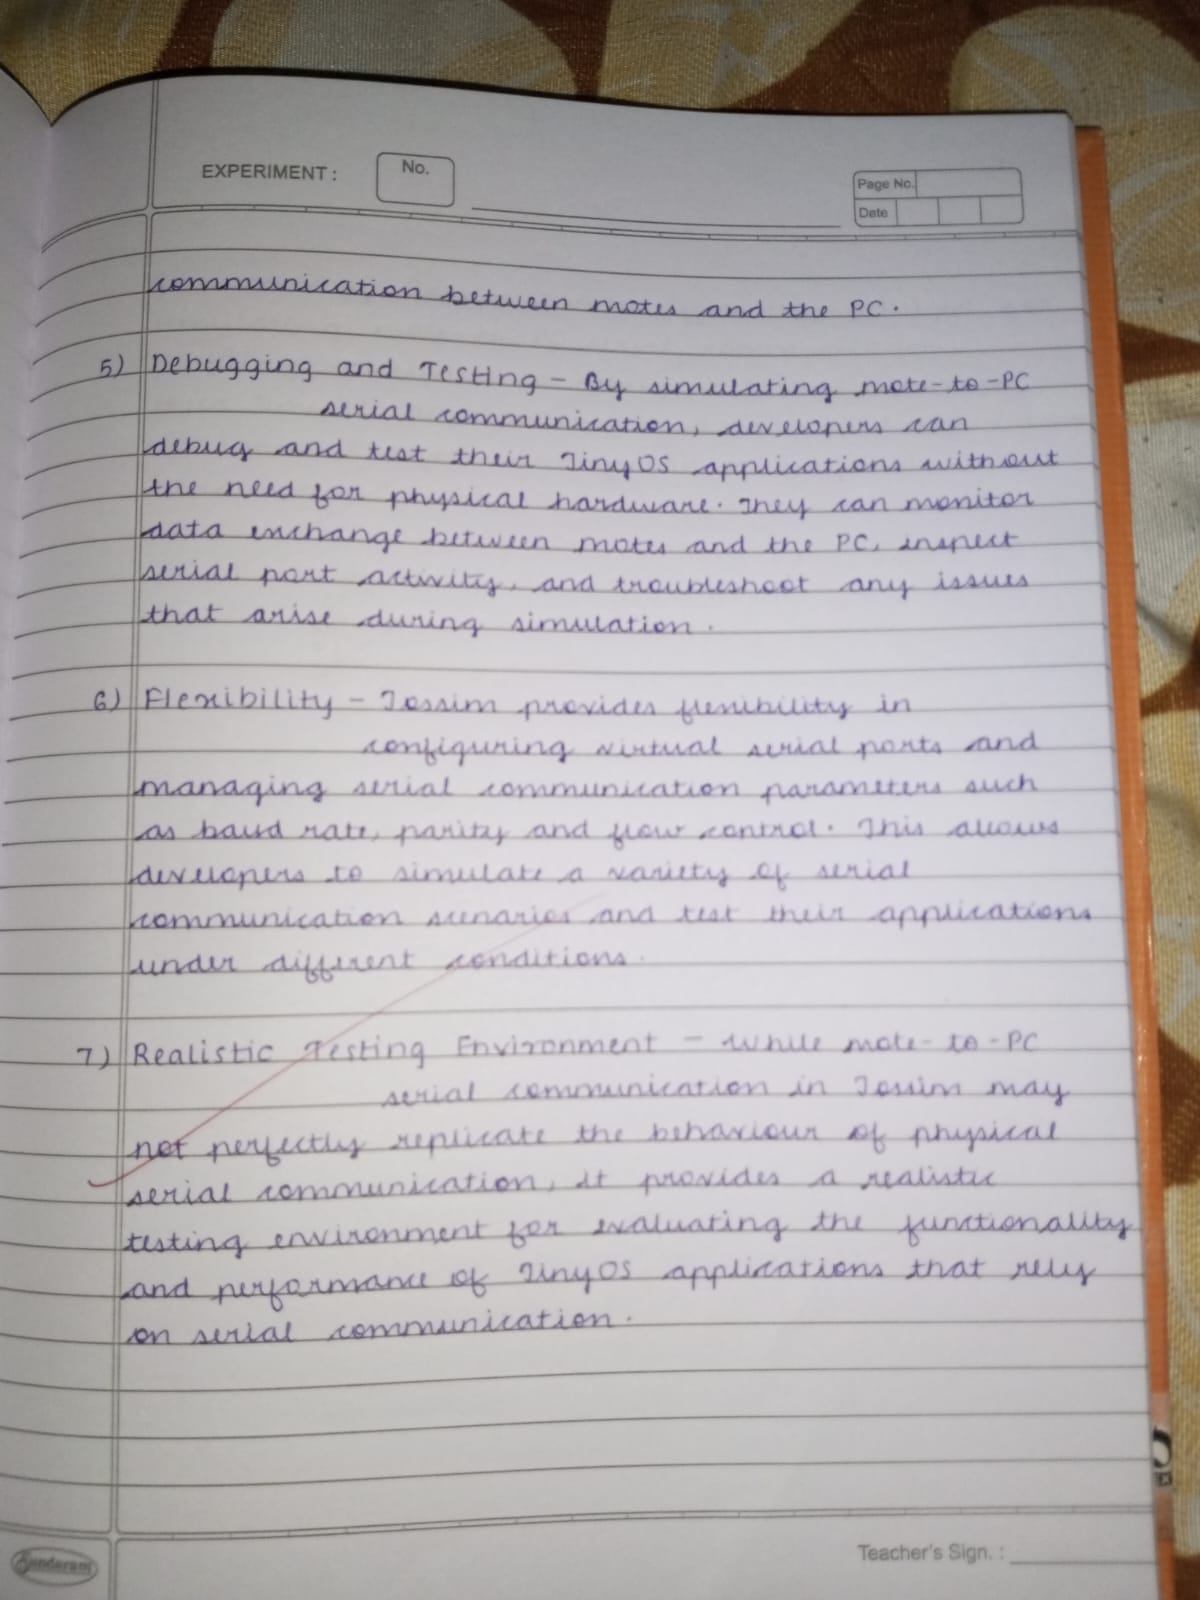 EXPERIMENT :
No.
Page No.
Date
communication between motes and the PC.
5) Debugging and Testing - By simulating mote-to-PC
serial communication, developers can
debug and test their TinyOS applications without
the need for physical hardware. They can monitor
data exchange between motes and the PC, inspect
serial port activity, and troubleshoot any issues
that arise during simulation.
6) Flexibility - Tossim provides flexibility in
configuring virtual serial ports and
managing serial communication parameters such
as baud rate, parity and flow control. This allows
developers to simulate a variety of serial
communication scenarios and test their applications
under different conditions.
7) Realistic Testing Environment - While mote-to-PC
serial communication in Tossim may
not perfectly replicate the behaviour of physical
serial communication, it provides a realistic
testing environment for evaluating the functionality
and performance of TinyOS applications that rely
on serial communication.
Sundaram
Teacher's Sign. :